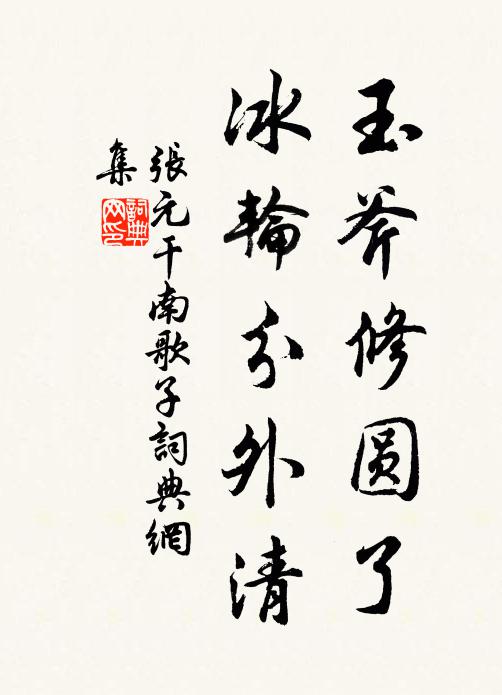 玉斧修圆了
冰輪分外清
張元干南歌子詞典網
集
詞典
网印